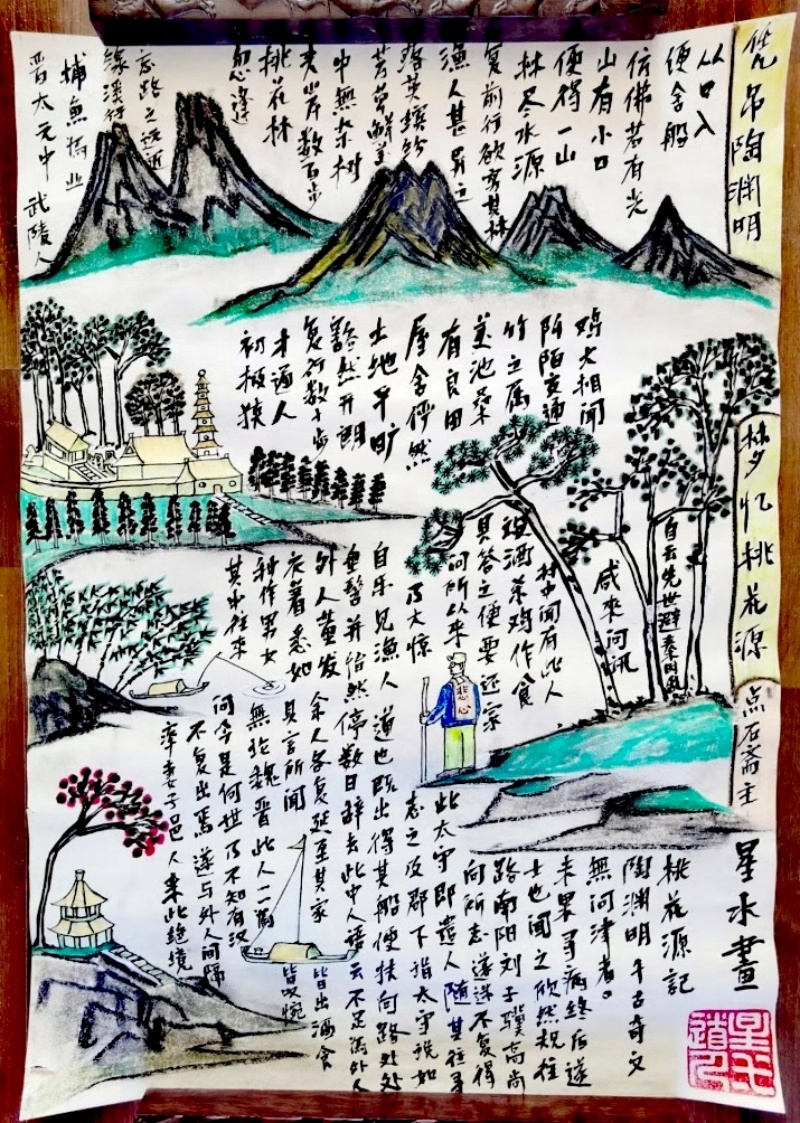 凭吊陶渊明
梦忆桃花源
点石斋主
星水畫
晋太元中 武陵人
捕魚為业
缘溪行
忘路之远近
忽逢
桃花林
夹岸数百步
中無杂树
芳草鲜美
落英缤纷
渔人甚异之
复前行欲穷其林
林尽水源
便得一山
山有小口
仿佛若有光
便舍船
从口入
初极狭
才通人
复行数十步
豁然开朗
土地平旷
屋舍俨然
有良田
美池桑
竹之属
阡陌交通
鸡犬相闻
其中往来
种作男女
衣着悉如
外人黄发
垂髫并怡然
自乐见渔人
乃大惊
问所以来
具答之便要还家
设酒杀鸡作食
村中闻有此人
咸来问讯
自云先世避秦时乱
率妻子邑人来此绝境
不复出焉 遂与外人间隔
问今是何世乃不知有汉
無论魏晋此人一一為
具言所闻
皆叹惋
余人各复延至其家
皆出酒食
停数日辞去此中人语
云不足為外人
道也既出得其船便扶向路处处
志之及郡下指太守说如
此太守即遣人随其往寻
向所志遂迷不复得
路南阳刘子骥高尚
士也闻之欣然规往
未果寻病终后遂
無问津者。
陶渊明千古奇文
桃花源记
悲心